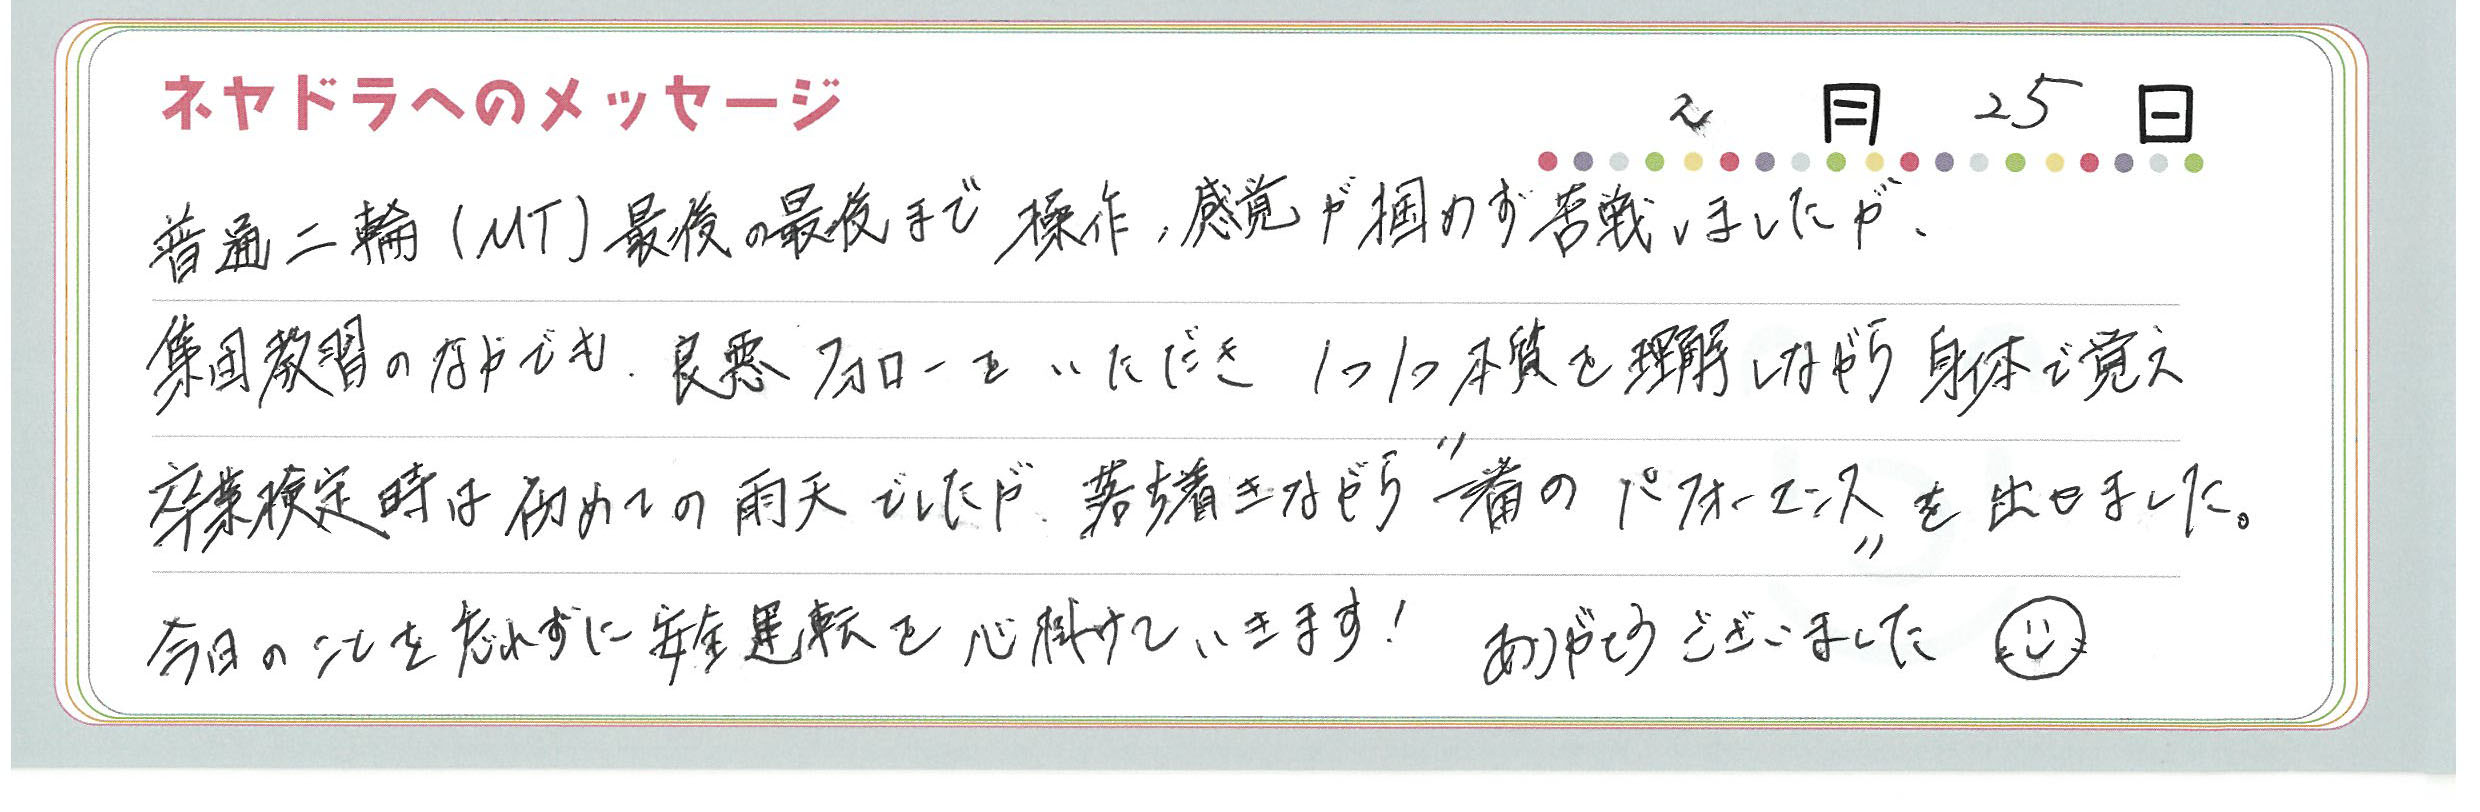 ネヤドラへのメッセージ
2月25日
普通二輪(MT)最後の最後まで操作、感覚が掴めず苦戦しましたが、
集団教習のなかでも、良悪フォローをいただき1つ1つ本質を理解しながら身体で覚え
卒業検定時は初めての雨天でしたが、落ち着きながら"一番のパフォーマンス"を出せました。
今日のことを忘れずに安全運転を心掛けていきます! ありがとうございました